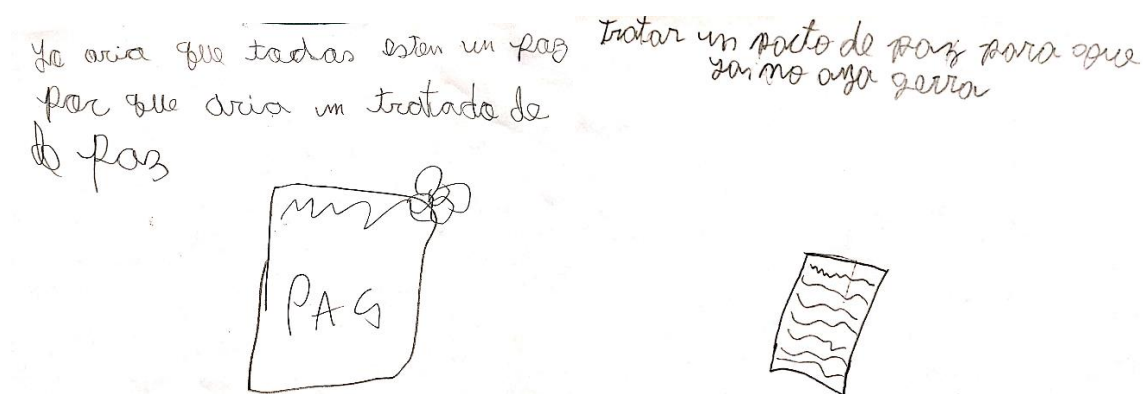 Yo aria que todas esten en paz
por que aria un tratado de
de paz
PAG
Tratar un pacto de paz para que
ya no aya gerra